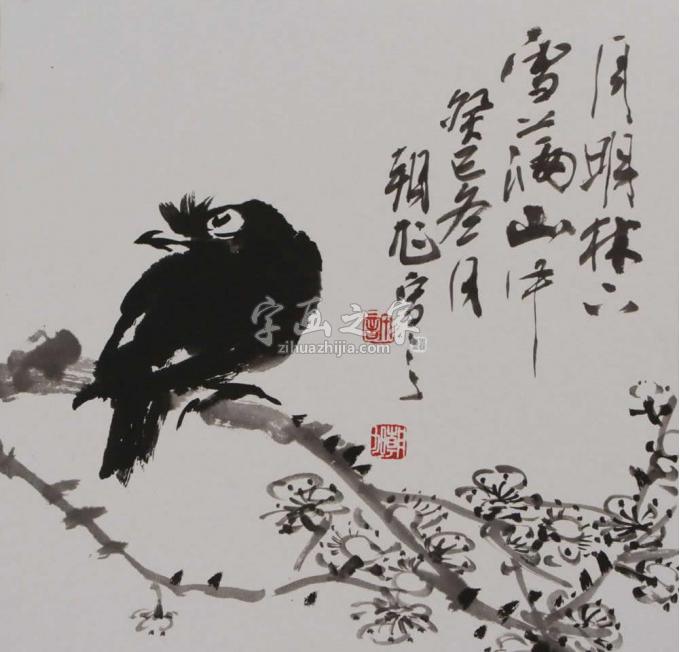 月明林下
雪滿山中
癸巳冬月
朝
字画之家
zihuazhijia.com